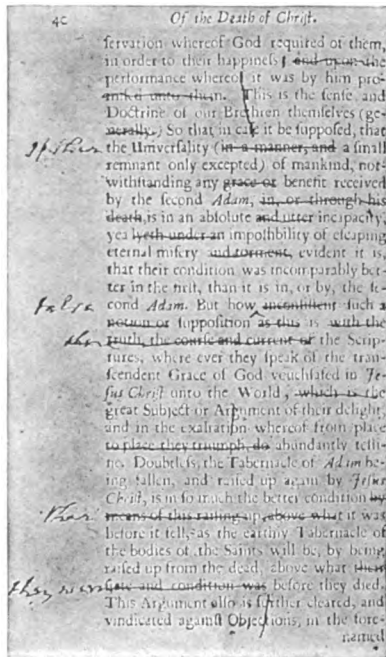 40 Of the Death of Christ.
servation whereof God required of them,
in order to their happiness; and upon the
performance whereof it was by him pro
mised unto them. This is the sense, and
Doctrine of our Brethren themselves (ge-
nerally.) So that in case it be supposed, that
the Universality (in a manner, and a small
remnant only excepted) of mankind, not-
withstanding any grace or benefit received
by the second Adam, in, or through his
death, is in an absolute and utter incapacity,
yea lyeth under an impossibility of escaping
eternal misery and torment, evident it is,
that their condition was incomparably bet-
ter in the first, than it is in, or by, the se-
false cond Adam. But how inconsistent such a
notion or supposition as this is with the
the truth, the course and current of the Scrip-
tures, where ever they speak of the tran-
scendent Grace of God vouchsafed in Je-
sus Christ unto the World, which is the
great Subject or Argument of their delight,
and in the exaltation whereof from place
to place they triumph, do abundantly testi-
fie. Doubtless, the Tabernacle of Adam be-
ing fallen, and raised up again by Jesus
Christ, is in so much the better condition by
than means of this raising up, above what it was
before it fell, as the earthy Tabernacle of
the bodies of the Saints will be, by being
raised up from the dead, above what their
they were state and condition was before they died.
This Argument also is further cleared, and
vindicated against Objections, in the fore-
named